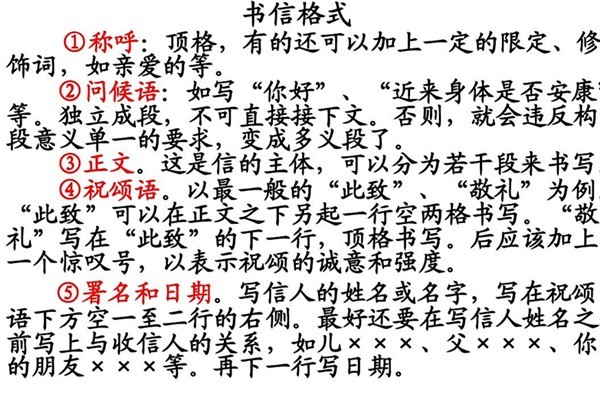 书信格式
①称呼：顶格，有的还可以加上一定的限定、修
饰词，如亲爱的等。
②问候语：如写“你好”、“近来身体是否安康”
等。独立成段，不可直接接下文。否则，就会违反构
段意义单一的要求，变成多义段了。
③正文。这是信的主体，可以分为若干段来书写
④祝颂语。以最一般的“此致”、“敬礼”为例
“此致”可以在正文之下另起一行空两格书写。“敬
礼”写在“此致”的下一行，顶格书写。后应该加上
一个惊叹号，以表示祝颂的诚意和强度。
⑤署名和日期。写信人的姓名或名字，写在祝颂
语下方空一至二行的右侧。最好还要在写信人姓名之
前写上与收信人的关系，如儿×××、父×××、你
的朋友×××等。再下一行写日期。